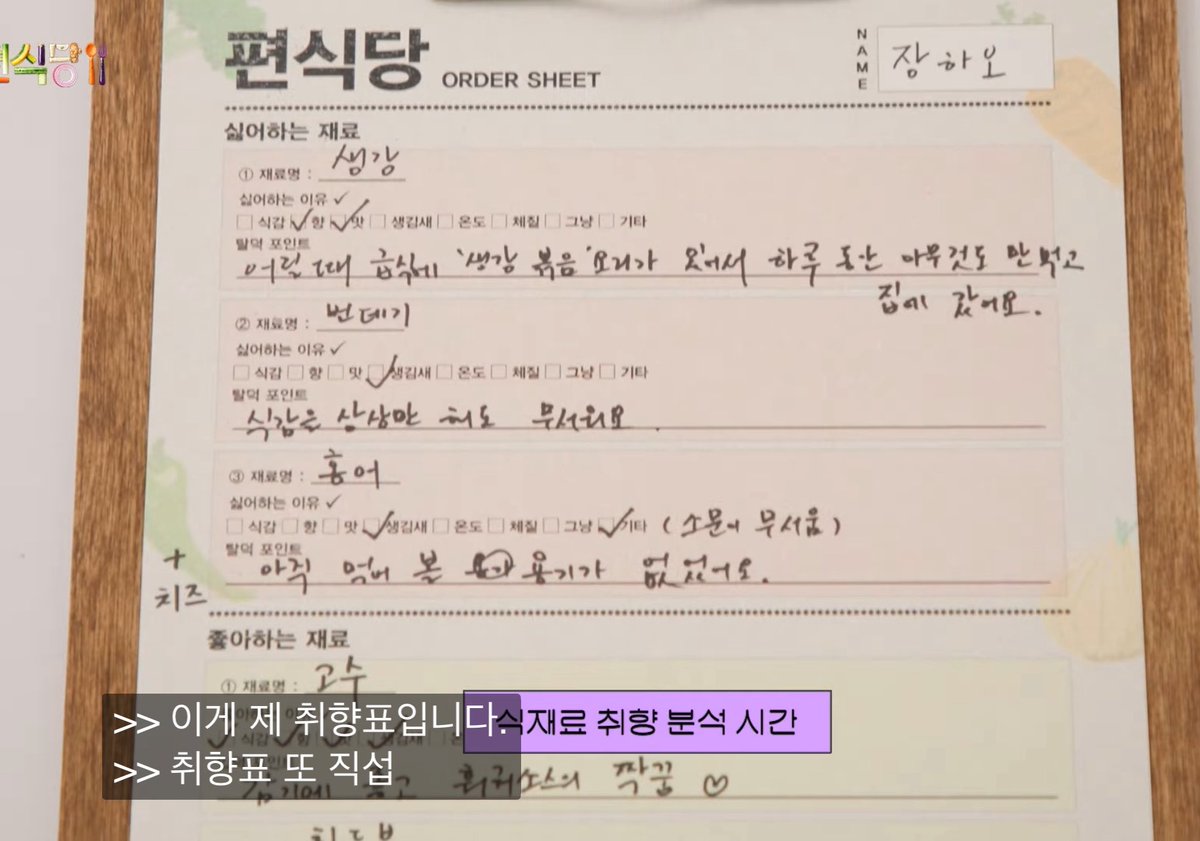 편식당 ORDER SHEET
NAME 장하오
식당
싫어하는 재료
① 재료명 : 생강
싫어하는 이유 ✓
식감 향 맛 생김새 온도 체질 그냥 기타
탈덕 포인트
어릴 때 급식에 '생강 볶음' 요리가 있어서 하루 동안 아무것도 안 먹고
집에 갔어요.
② 재료명 : 번데기
싫어하는 이유 ✓
식감 향 맛 생김새 온도 체질 그냥 기타
탈덕 포인트
식감을 상상만 해도 무서워요.
③ 재료명 : 홍어
싫어하는 이유 ✓
식감 향 맛 생김새 온도 체질 그냥 기타 (소문이 무서움)
탈덕 포인트
아직 먹어 볼 용기가 없었어요.
+
치즈
좋아하는 재료
① 재료명 : 고수
>> 이게 제 취향표입니다.
식재료 취향 분석 시간
>> 취향표 또 직섭
훠궈소스의 짝꿍 ♡